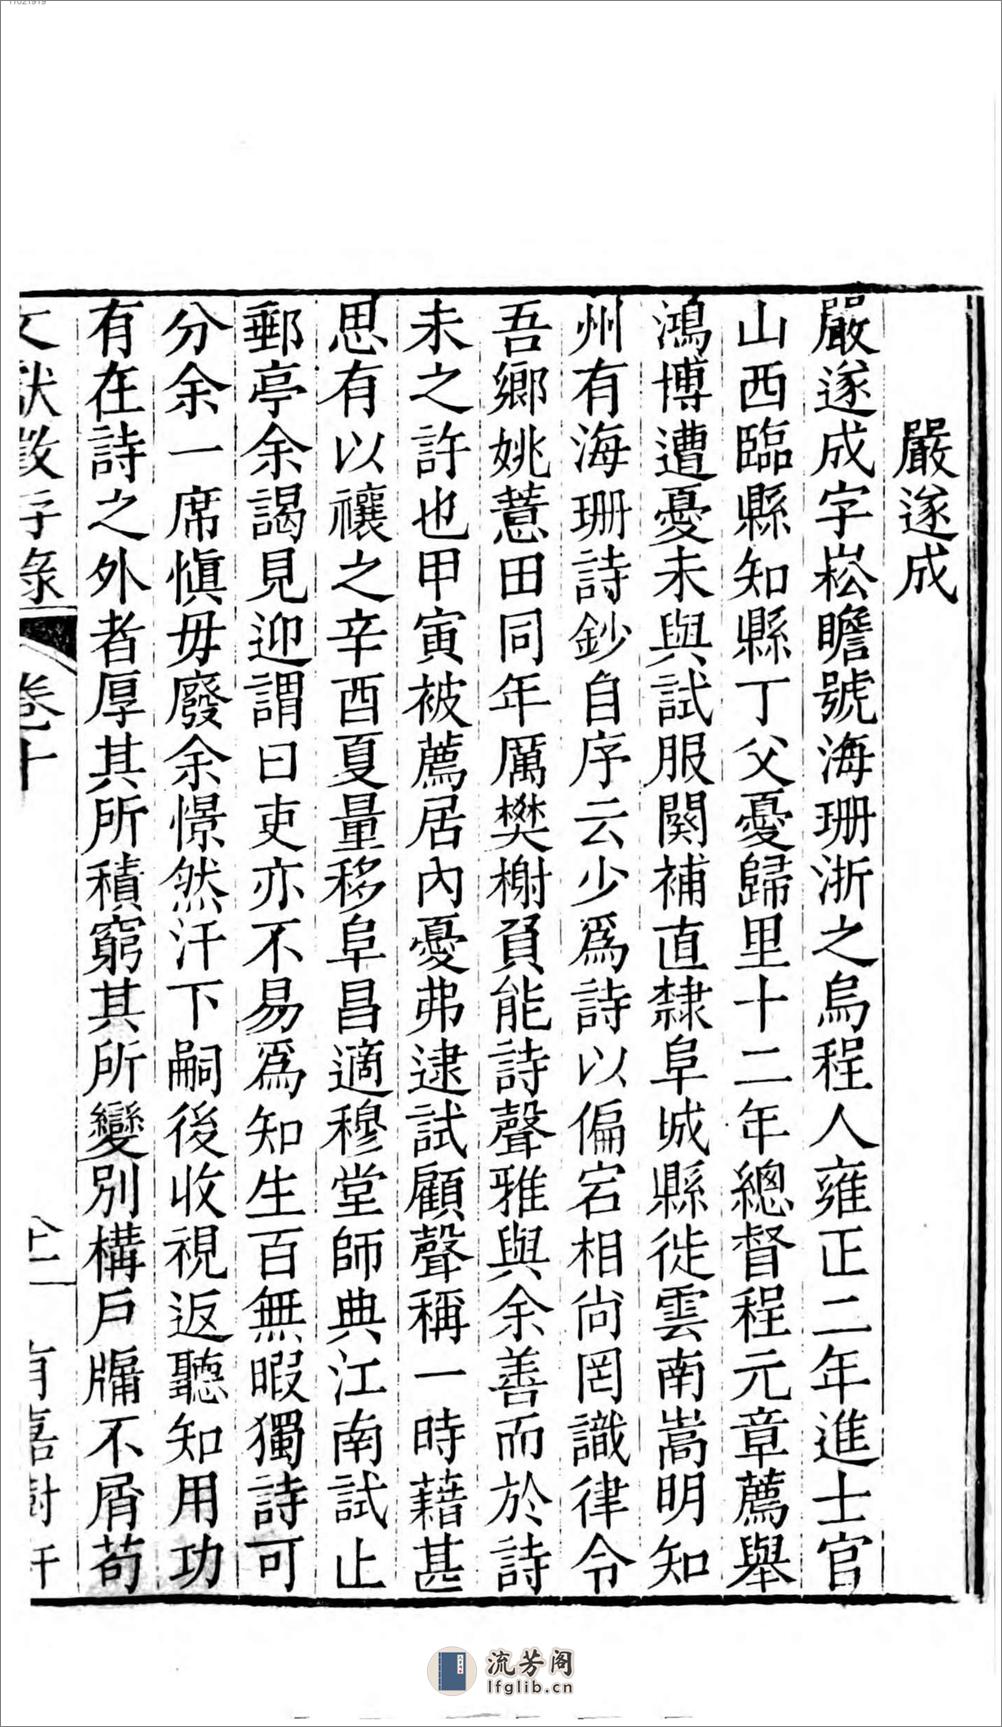 嚴遂成
嚴遂成字崧瞻號海珊浙之烏程人雍正二年進士官
山西臨縣知縣丁父憂歸里十二年總督程元章薦舉
鴻博遭憂未與試服闋補直隸阜城縣徙雲南嵩明知
州有海珊詩鈔自序云少爲詩以偏宕相尚罔識律令
吾鄉姚薏田同年厲樊榭負能詩聲雅與余善而於詩
未之許也甲寅被薦居內憂弗逮試顧聲稱一時藉甚
思有以禳之辛酉夏量移阜昌適穆堂師典江南試止
郵亭余謁見迎謂曰吏亦不易爲知生百無暇獨詩可
分余一席慎毋廢余憬然汗下嗣後收視返聽知用功
有在詩之外者厚其所積窮其所變別構戶牖不屑苟
文獻徵存錄 卷十 有嘉樹軒
流芳阁
lfglib.cn